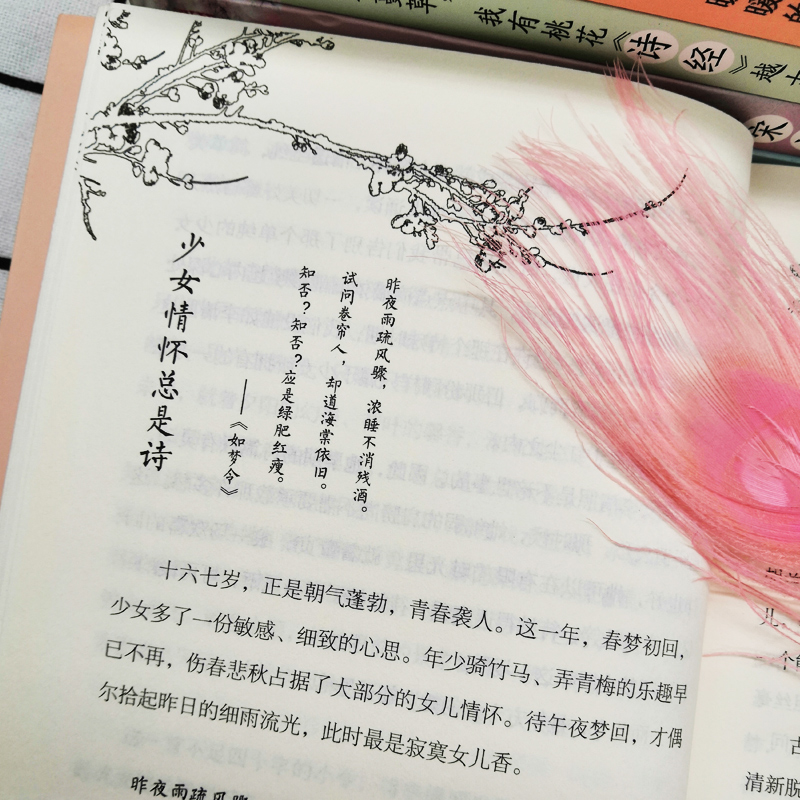 我有桃花《诗经》越
宋
少女情怀总是诗
昨夜雨疏风骤，浓睡不消残酒。
试问卷帘人，却道海棠依旧。
知否？知否？应是绿肥红瘦。
——《如梦令》
十六七岁，正是朝气蓬勃，青春袭人。这一年，春梦初回，
少女多了一份敏感、细致的心思。年少骑竹马、弄青梅的乐趣早
已不再，伤春悲秋占据了大部分的女儿情怀。待午夜梦回，才偶
尔拾起昨日的细雨流光，此时最是寂寞女儿香。
昨夜雨疏风骤
儿、
一个
古
清新脱